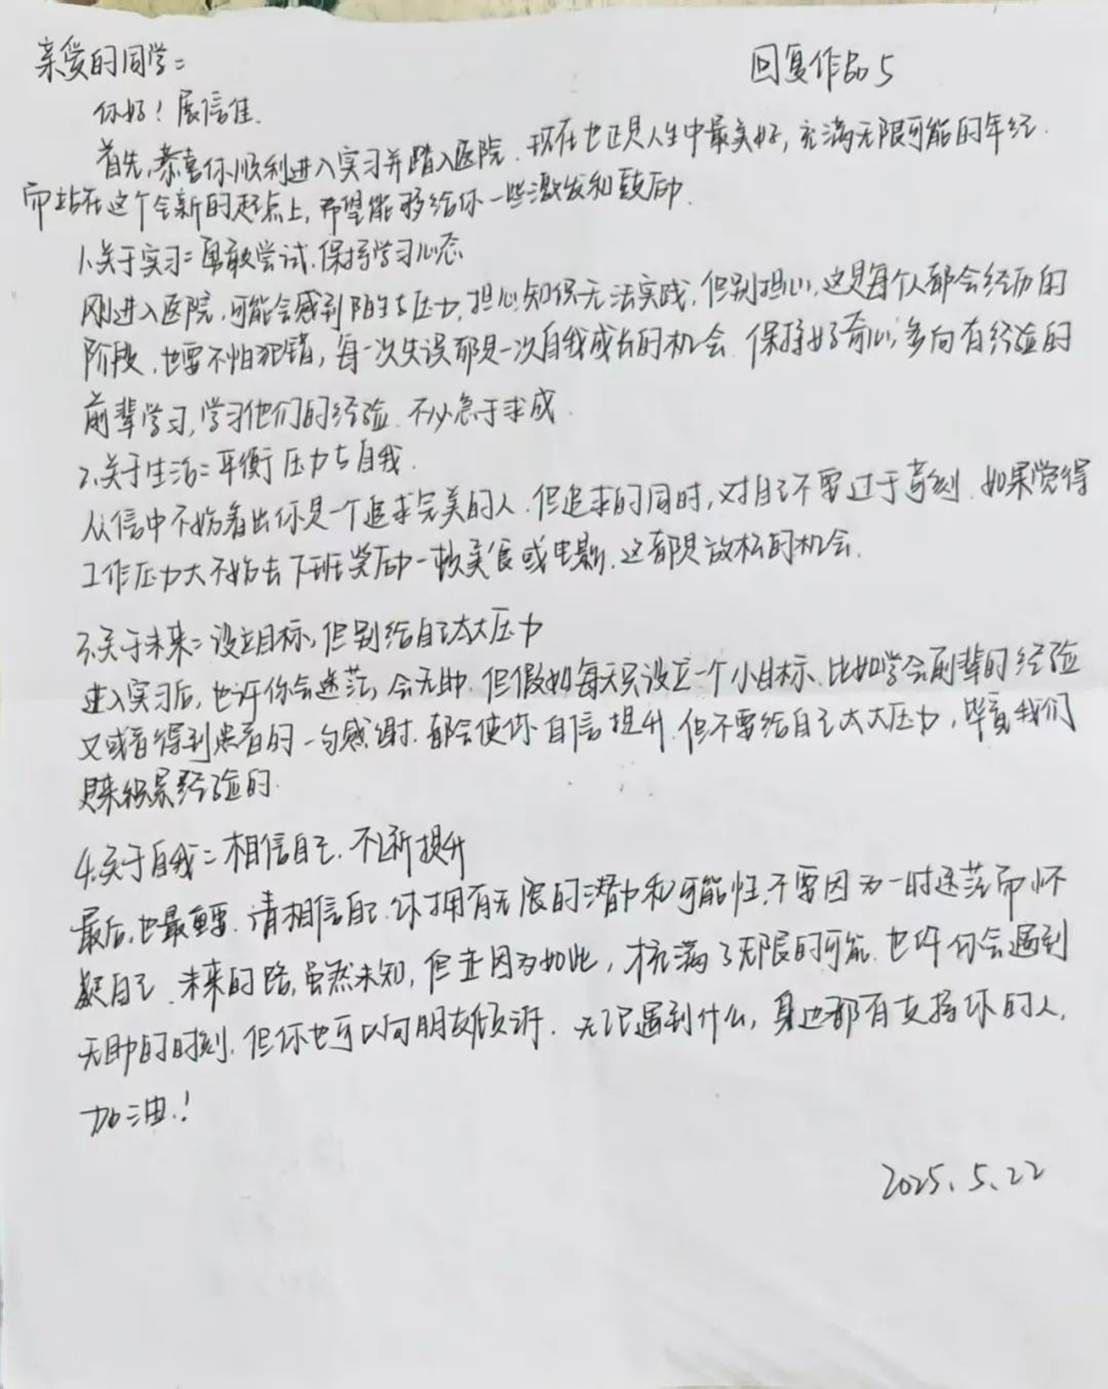 亲爱的同学：
回复作品5
你好！展信佳.
首先,恭喜你顺利进入实习并踏入医院.现在也正是人生中最美好,充满无限可能的年纪.
而站在这个全新的起点上,希望能够给你一些激发和鼓励.
1.关于实习：勇敢尝试.保持学习心态
刚进入医院,可能会感到陌生与压力,担心知识无法实践,但别担心,这是每个人都会经历的
阶段.也要不怕犯错,每一次失误都是一次自我成长的机会.保持好奇心,多向有经验的
前辈学习,学习他们的经验.不必急于求成.
2.关于生活：平衡压力与自我.
从信中不妨看出你是一个追求完美的人.但追求的同时,对自己不要过于苛刻.如果觉得
工作压力大不妨去下班奖励一顿美食或电影.这都是放松的机会.
3.关于未来：设立目标,但别给自己太大压力
进入实习后,也许你会迷茫,会无助.但假如每天只设立一个小目标.比如学会前辈的经验
又或者得到患者的一句感谢.都会使你自信提升.但不要给自己太大压力,毕竟我们
是来积累经验的.
4.关于自我：相信自己.不断提升
最后,也最重要.请相信自己.你拥有无限的潜力和可能性.不要因为一时迷茫而怀
疑自己.未来的路,虽然未知,但正因为如此,才充满了无限的可能.也许你会遇到
无助的时刻.但你也可以向朋友倾诉.无论遇到什么,身边都有支持你的人.
加油.!
2025.5.22